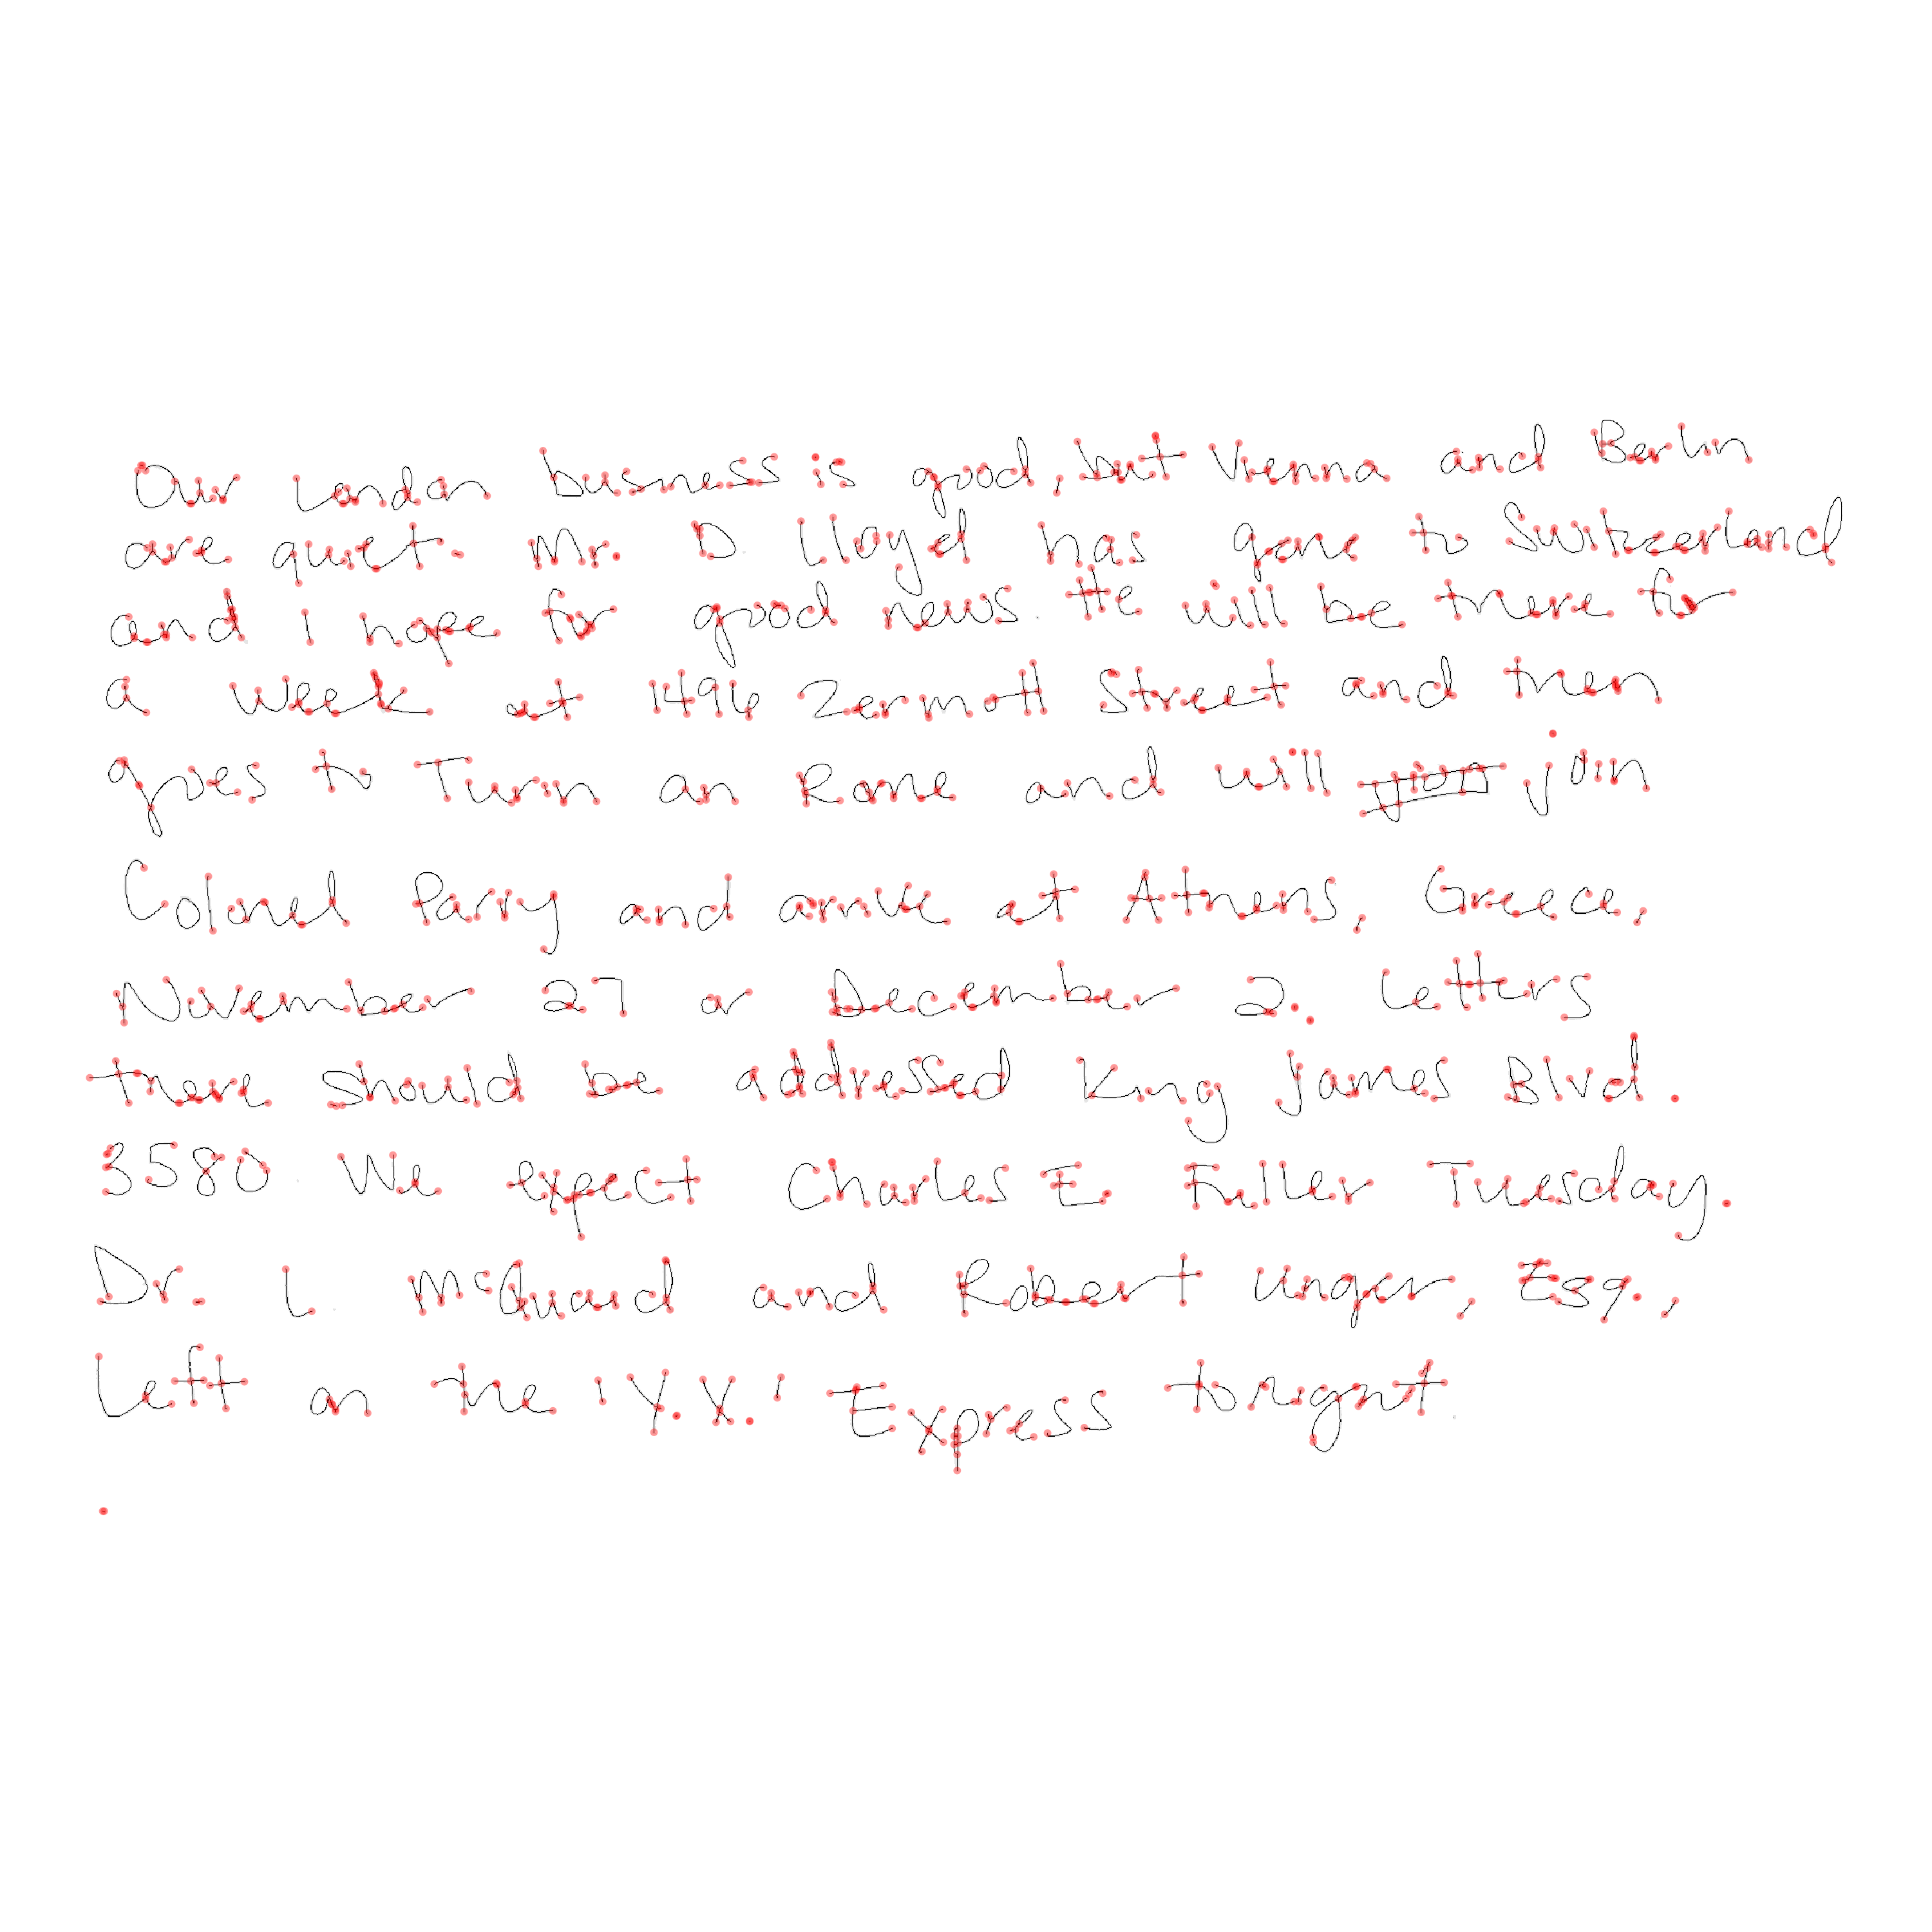 Our London business is good, but Vienna and Berlin
are quiet. Mr. D Lloyd has gone to Switzerland
and I hope for good news. He will be there for
a week at 1496 Zermott Street and then
goes to Turin an Rome and will join
Colonel Parry and arrive at Athens, Greece,
November 27 or December 2. Letters
there should be addressed King James Blvd.
3580. We expect Charles E. Fuller Tuesday.
Dr. L McQuaid and Robert Unger, Esq.,
Left on the 'Y.X.' Express tonight.